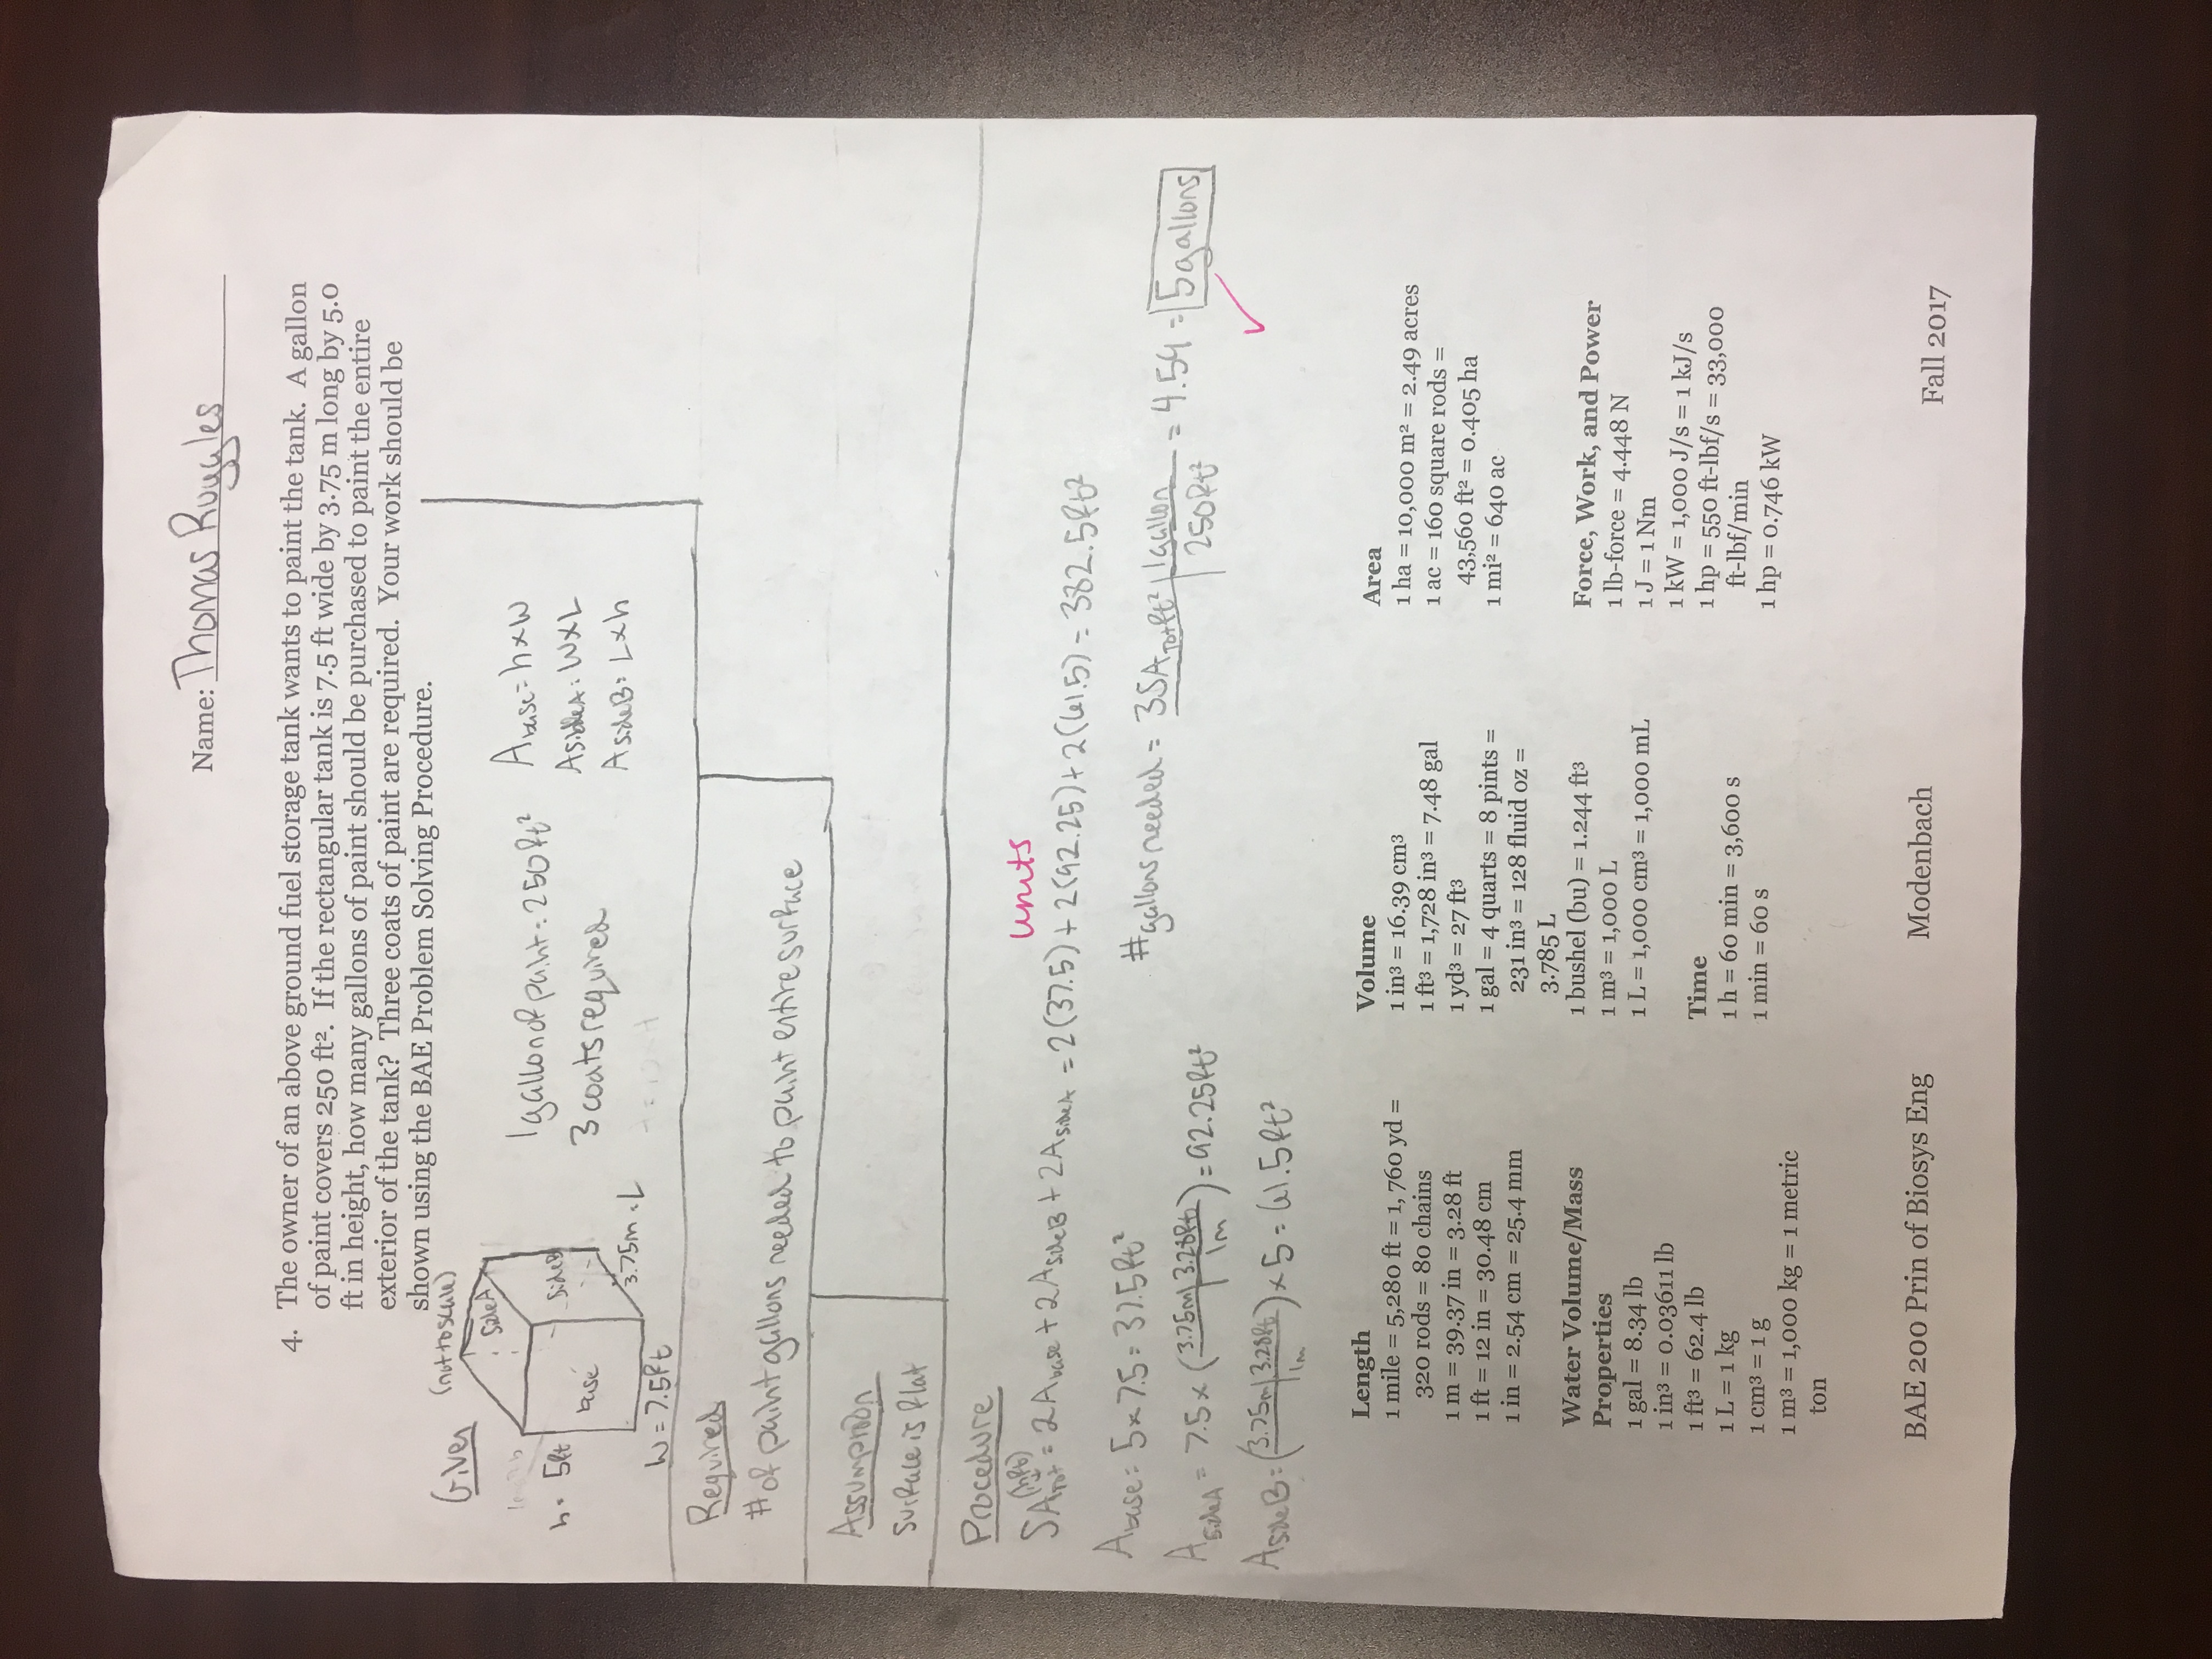 Name: Thomas Ruggles
4. The owner of an above ground fuel storage tank wants to paint the tank. A gallon
of paint covers 250 ft². If the rectangular tank is 7.5 ft wide by 3.75 m long by 5.0
ft in height, how many gallons of paint should be purchased to paint the entire
exterior of the tank? Three coats of paint are required. Your work should be
shown using the BAE Problem Solving Procedure.
Given (not to scale)
Side A
h = 5ft
Side B
base
3.75m = L
W = 7.5ft
1 gallon of paint = 250ft²
3 coats required
A base = h x W
A sideA = W x L
A sideB = L x h
Required
# of paint gallons needed to paint entire surface
Assumption
Surface is flat
Procedure
units
(in ft)
SA Tot = 2A base + 2A sideB + 2A sideA = 2(37.5) + 2(92.25) + 2(61.5) = 382.5ft²
A base = 5 x 7.5 = 37.5ft²
A sideA = 7.5 x (3.75m | 3.28ft / 1m) = 92.25ft²
A sideB = (3.75m | 3.28ft / 1m) x 5 = 61.5ft²
# gallons needed = 3SA Tot ft² | 1 gallon / 250ft² = 4.59 = 5 gallons
✓
Length
1 mile = 5,280 ft = 1, 760 yd =
320 rods = 80 chains
1 m = 39.37 in = 3.28 ft
1 ft = 12 in = 30.48 cm
1 in = 2.54 cm = 25.4 mm
Water Volume/Mass
Properties
1 gal = 8.34 lb
1 in³ = 0.03611 lb
1 ft³ = 62.4 lb
1 L = 1 kg
1 cm³ = 1 g
1 m³ = 1,000 kg = 1 metric
ton
Volume
1 in³ = 16.39 cm³
1 ft³ = 1,728 in³ = 7.48 gal
1 yd³ = 27 ft³
1 gal = 4 quarts = 8 pints =
231 in³ = 128 fluid oz =
3.785 L
1 bushel (bu) = 1.244 ft³
1 m³ = 1,000 L
1 L = 1,000 cm³ = 1,000 mL
Time
1 h = 60 min = 3,600 s
1 min = 60 s
Area
1 ha = 10,000 m² = 2.49 acres
1 ac = 160 square rods =
43,560 ft² = 0.405 ha
1 mi² = 640 ac
Force, Work, and Power
1 lb-force = 4.448 N
1 J = 1 Nm
1 kW = 1,000 J/s = 1 kJ/s
1 hp = 550 ft-lbf/s = 33,000
ft-lbf/min
1 hp = 0.746 kW
BAE 200 Prin of Biosys Eng Modenbach Fall 2017